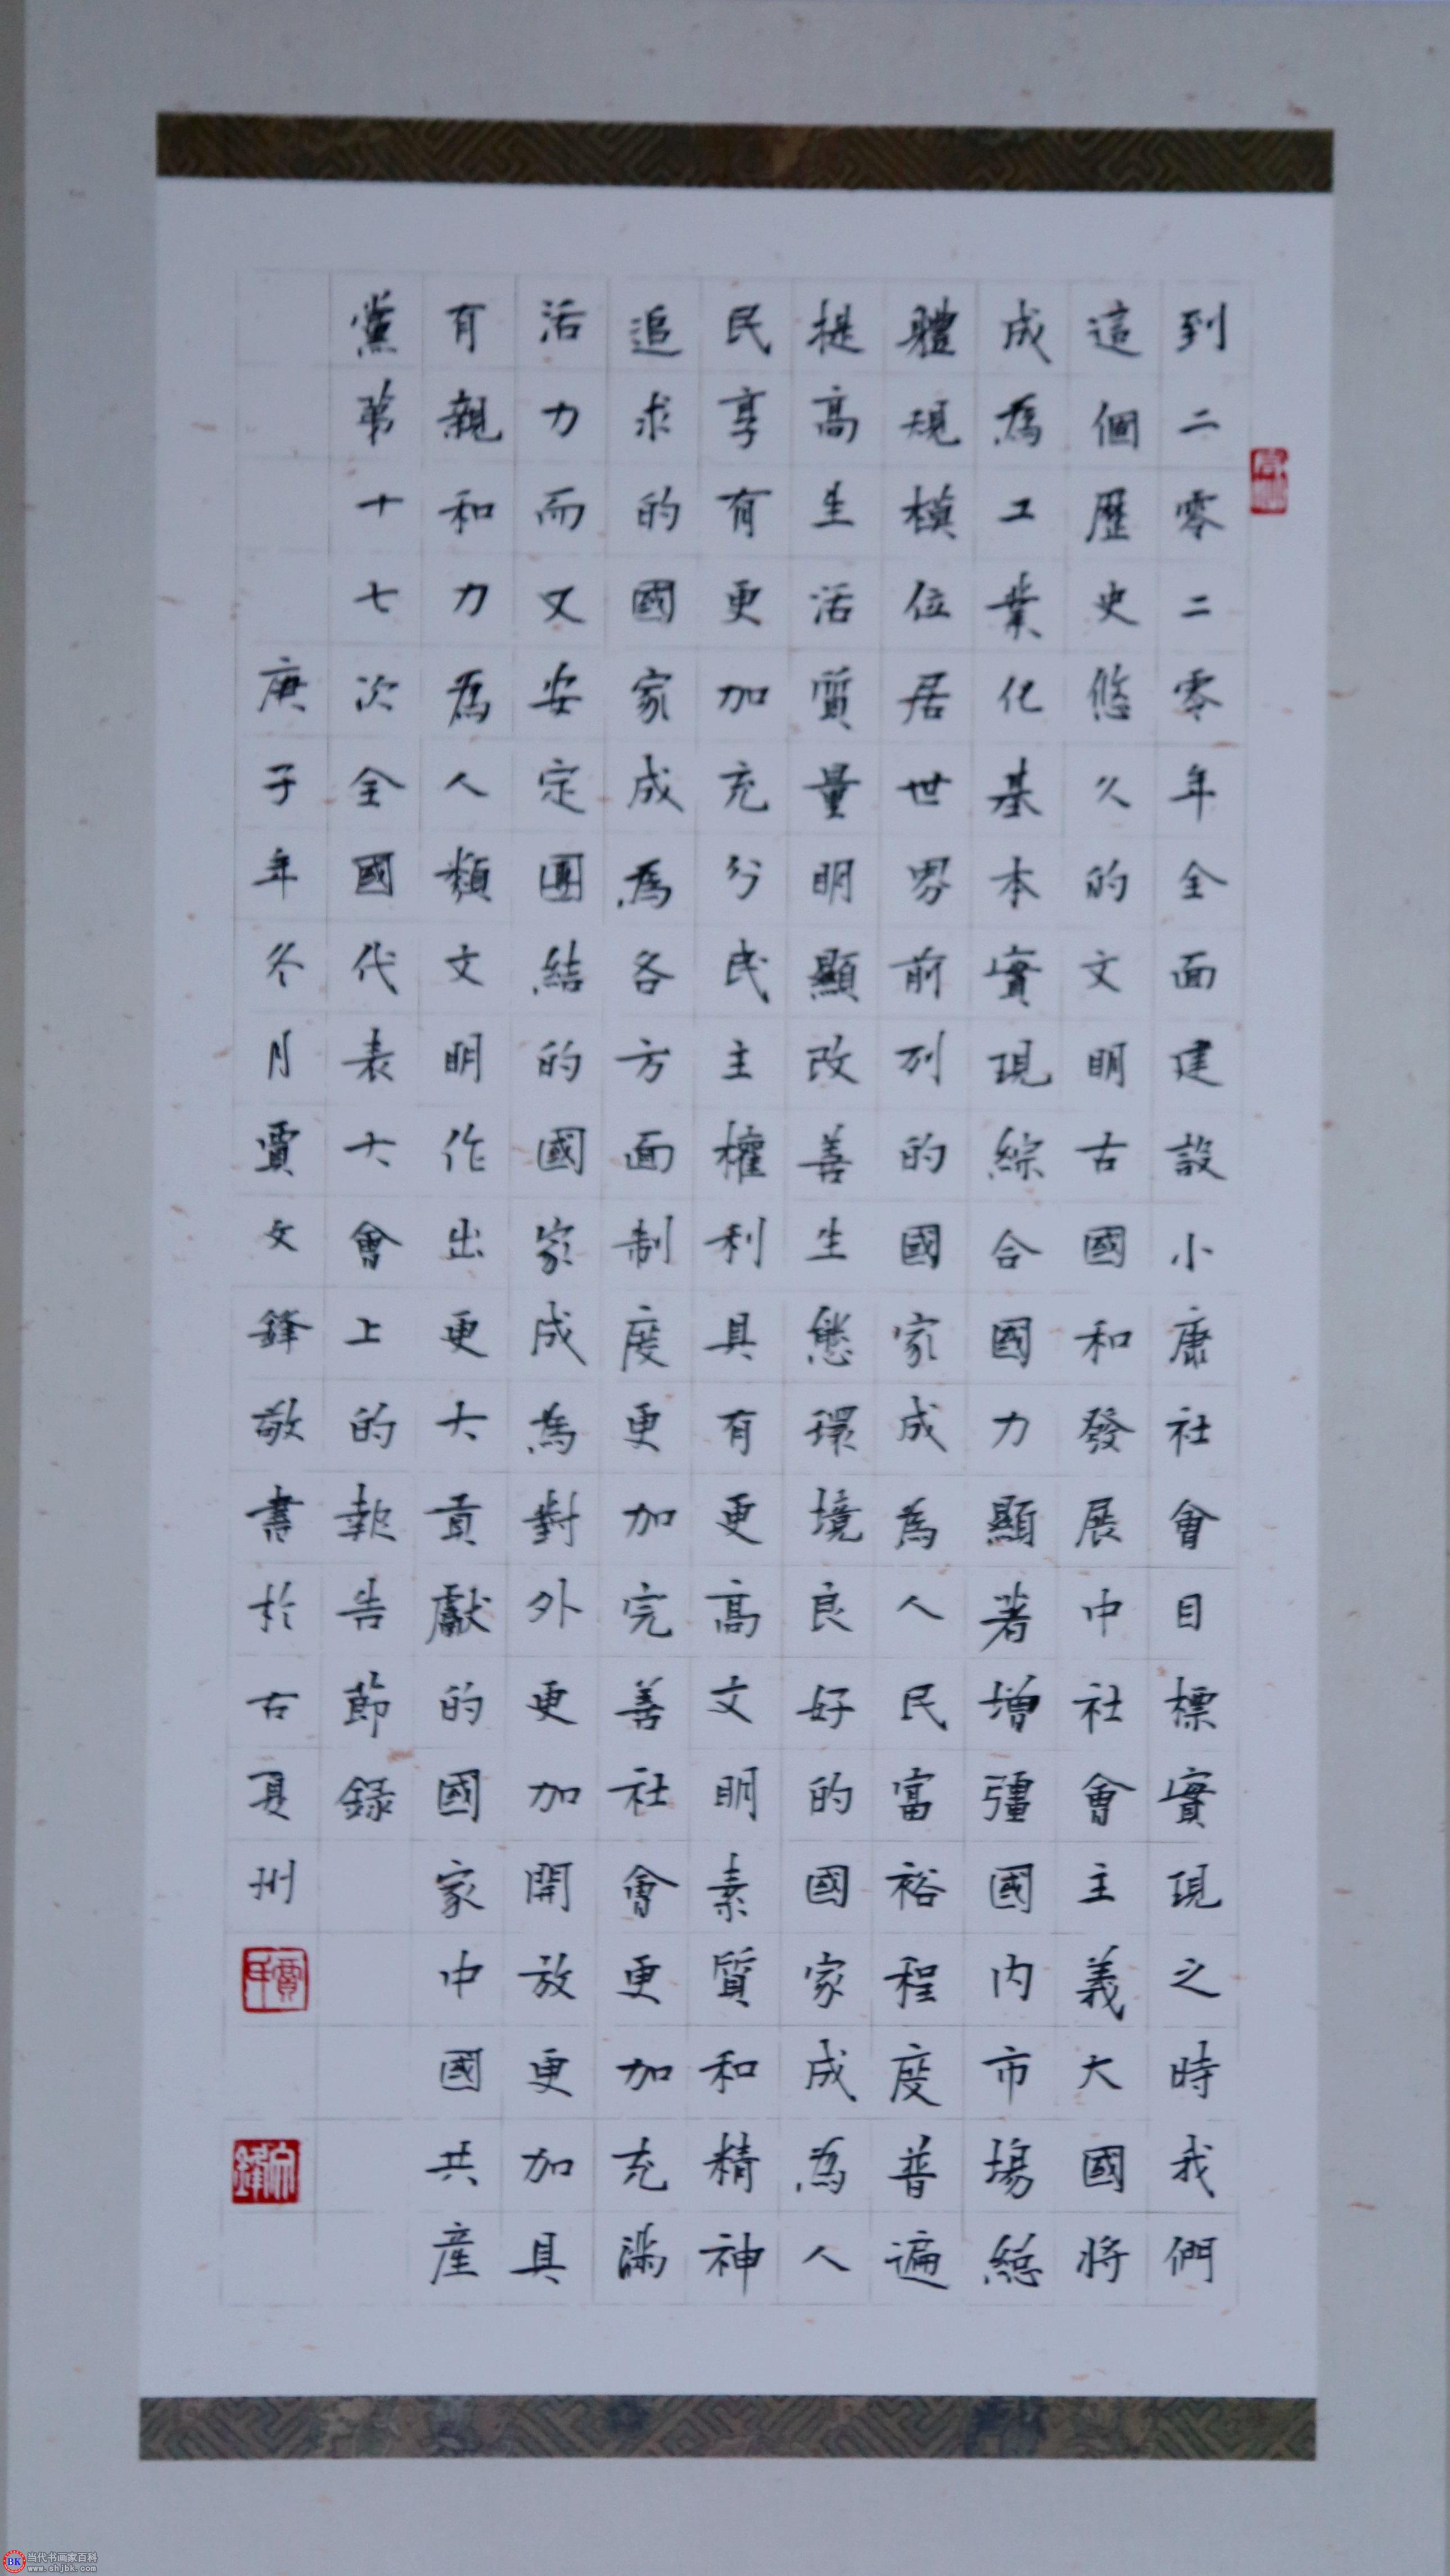 到二零二零年全面建設小康社會目標實現之時我們
這個歷史悠久的文明古國和發展中社會主義大國將
成為工業化基本實現綜合國力顯著增彊國內市場總
體規模位居世界前列的國家成為人民富裕程度普遍
提高生活質量明顯改善生態環境良好的國家成為人
民享有更加充分民主權利具有更高文明素質和精神
追求的國家成為各方面制度更加完善社會更加充滿
活力而又安定團結的國家成為對外更加開放更加具
有親和力為人類文明作出更大貢獻的國家中國共產
黨第十七次全國代表大會上的報告節錄
庚子年冬月賈文鋒敬書於古夏州
文鋒
当代书画家百科
www.shjbk.com
BK